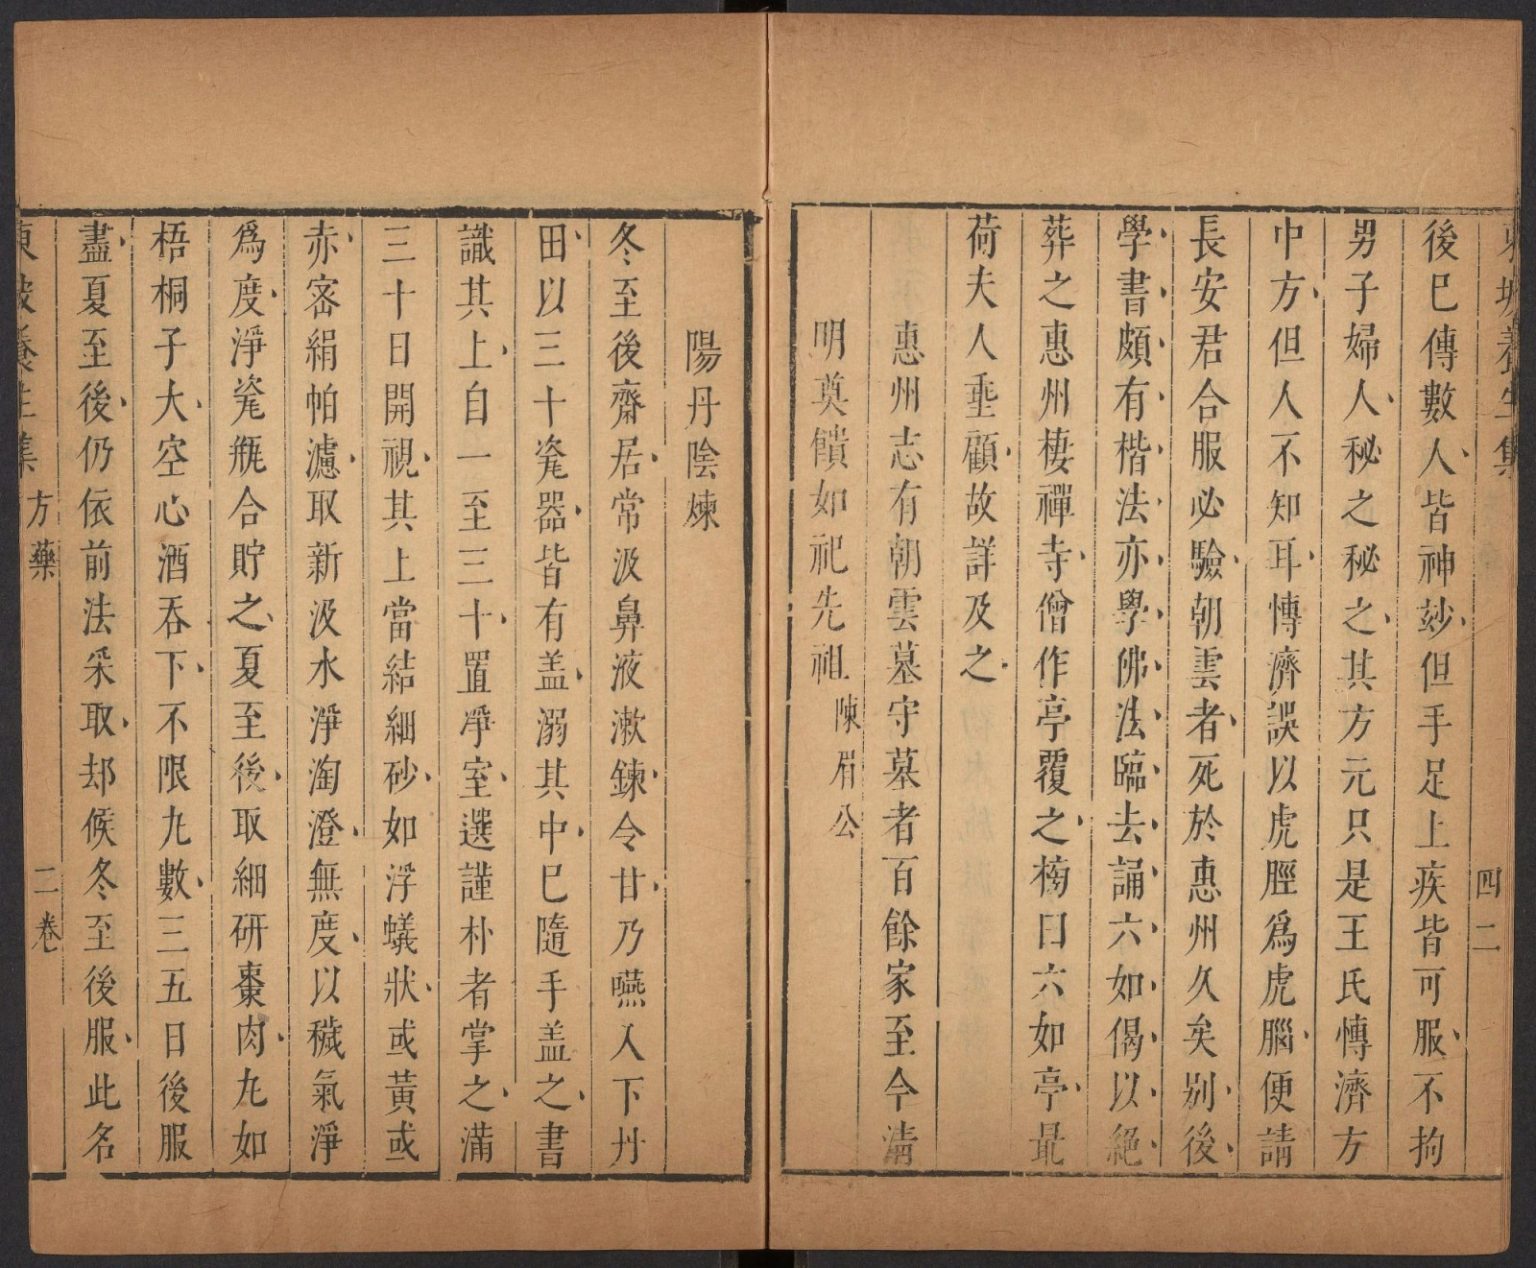 東坡養生集
四二
後巳傳數人皆神玅但手足上疾皆可服不拘
男子婦人秘之秘之其方元只是王氏愽濟方
中方但人不知耳愽濟誤以虎脛爲虎腦便請
長安君合服必驗朝雲者死於惠州久矣别後
學書頗有楷法亦學佛法臨去誦六如偈以絕
葬之惠州棲禪寺僧作亭覆之榜曰六如亭最
荷夫人垂顧故詳及之
惠州志有朝雲墓守墓者百餘家至今清
明奠饋如祀先祖 陳眉公
陽丹陰煉
冬至後齋居常汲鼻液漱鍊令甘乃嚥入下丹
田以三十瓷器皆有盖溺其中巳隨手盖之書
識其上自一至三十置淨室選謹朴者掌之滿
三十日開視其上當結細砂如浮蟻狀或黃或
赤密絹帕濾取新汲水淨淘澄無度以穢氣淨
爲度淨瓷甁合貯之夏至後取細研棗肉九如
梧桐子大空心酒吞下不限九數三五日後服
盡夏至後仍依前法采取却候冬至後服此名
東坡養生集 方藥 二卷